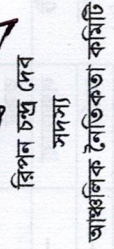 রিপন চন্দ্র দেব
সদস্য
আঞ্চলিক নৈতিকতা কমিটি